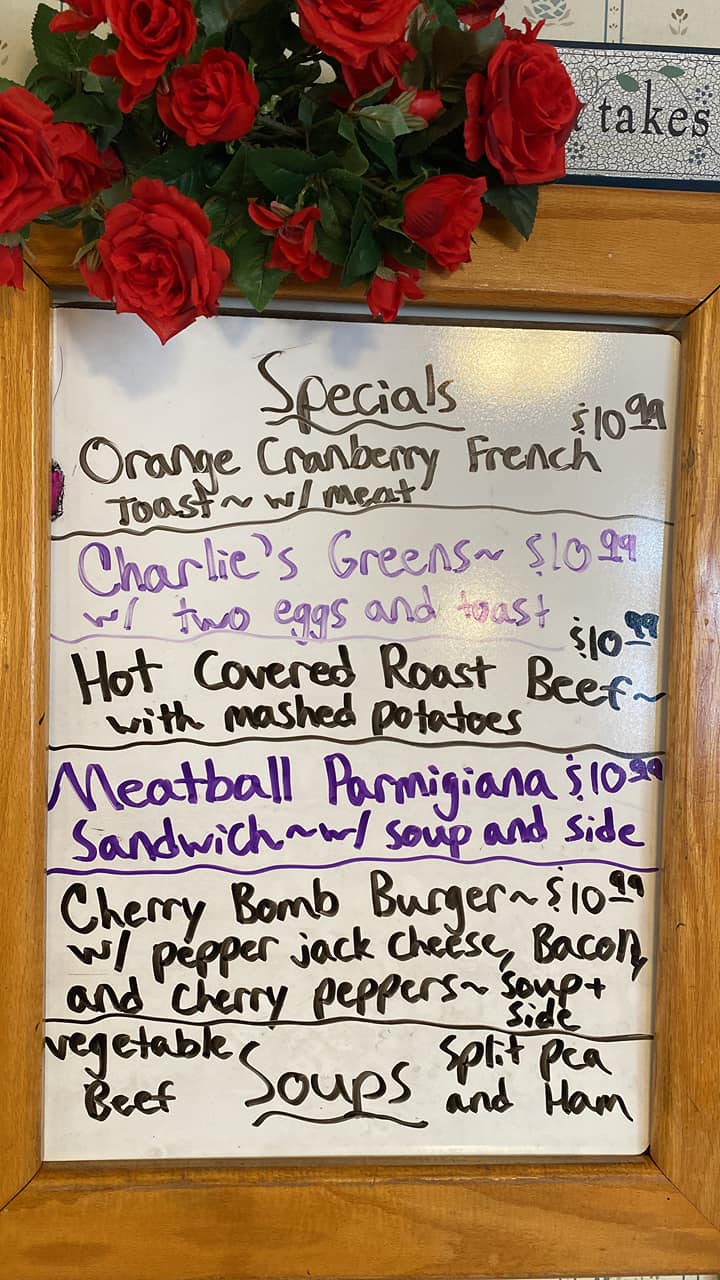 takes
Specials
$10.99
Orange Cranberry French
Toast~ w/ meat
Charlie's Greens~ $10.99
w/ two eggs and toast
$10.99
Hot Covered Roast Beef~
with mashed potatoes
Meatball Parmigiana $10.99
Sandwich~w/ soup and side
Cherry Bomb Burger~ $10.99
w/ pepper jack cheese, Bacon,
and cherry peppers~ soup+
side
vegetable
Beef
Soups
Split pea
and Ham